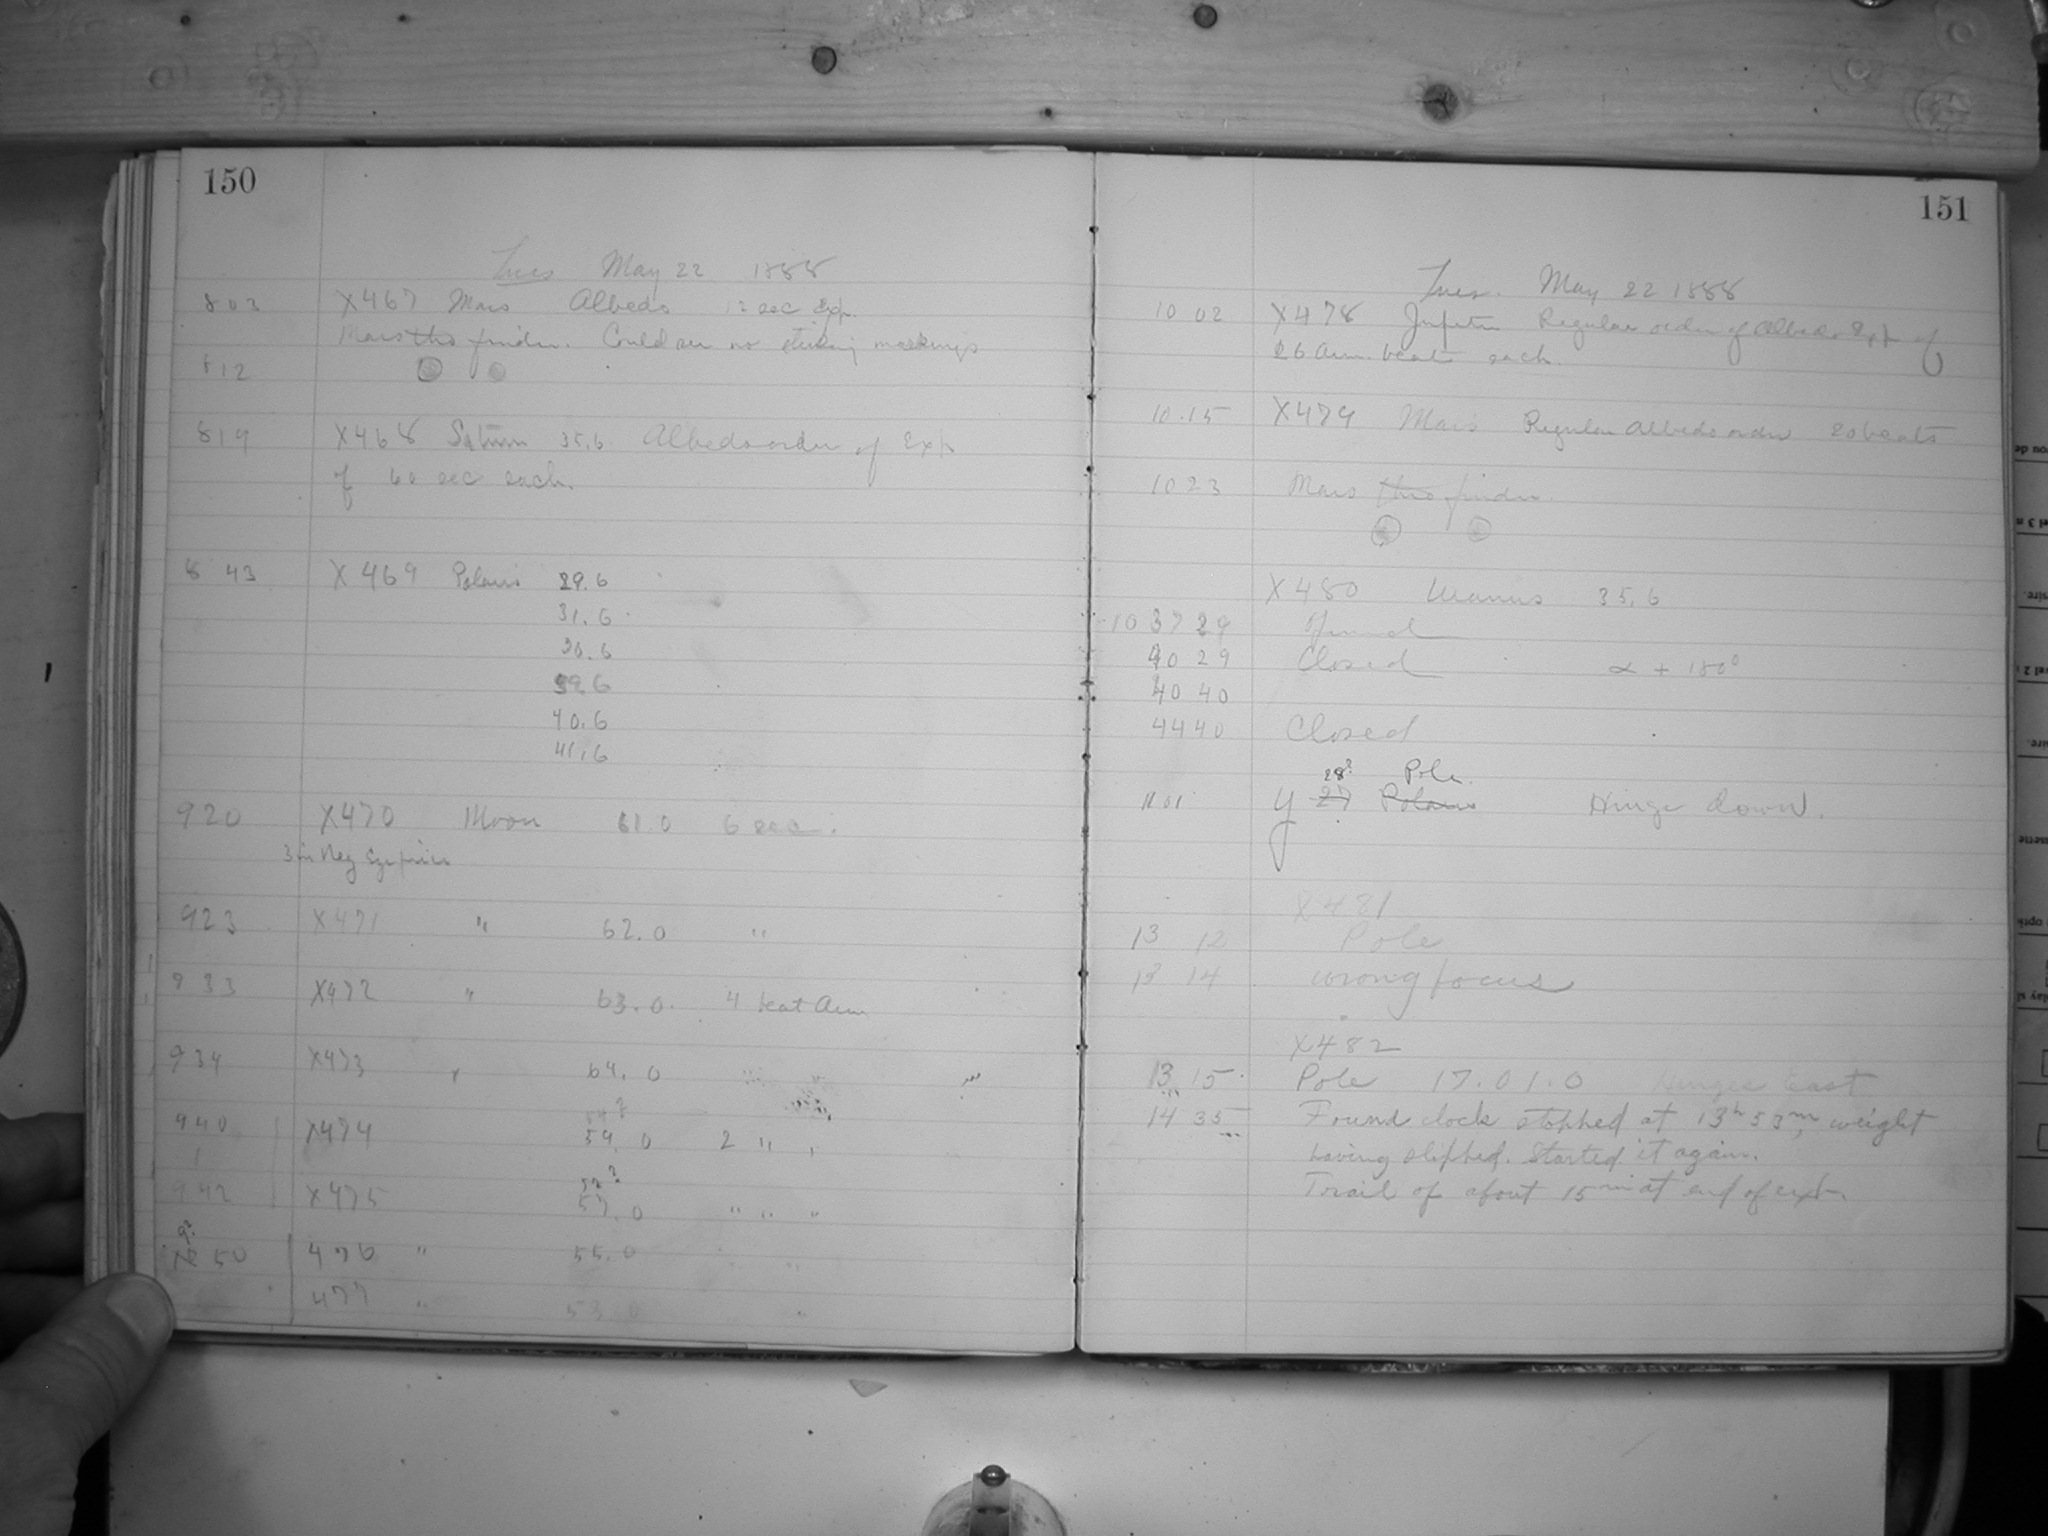 150
Tues May 22 1888
8 03 X467 Mars Albedo 12 sec Exp.
Mars thro finder. Could see no striking markings
8 12
8 19 X468 Saturn 35.6 Albedo order of Exp
of 60 sec each.
8 43 X469 Polaris 29.6
31.6
30.6
39.6
40.6
41.6
9 20 X470 Moon 61.0 6 sec.
3 in Neg Eyepiece
9 23 X471 " 62.0 "
9 33 X472 " 63.0 4 beat Arm
9 34 X473 " 64.0 " " "
54?
9 40 X474 59.0 2 " "
52?
9 42 X475 57.0 " " "
9?
50 476 " 55.0 "
477 " 53.0 "
151
Tues. May 22 1888
10 02 X478 Jupiter Regular order of Albedo Exp of
26 Arm. beats each.
10.15 X479 Mars Regular Albedo order 20 beats
10 23 Mars thro finder
X480 Uranus 35.6
10 37 29 Opened
40 29 Closed α + 180°
40 40
44 40 Closed
28? Pole.
11 01 Y 27 Polaris Hinge down.
X481
13 12 Pole
13 14 wrong focus
X482
13 15 Pole 17.01.0 Hinge East
14 35 Found clock stopped at 13h 53m, weight
having slipped. Started it again.
Trail of about 15m at end of exp.